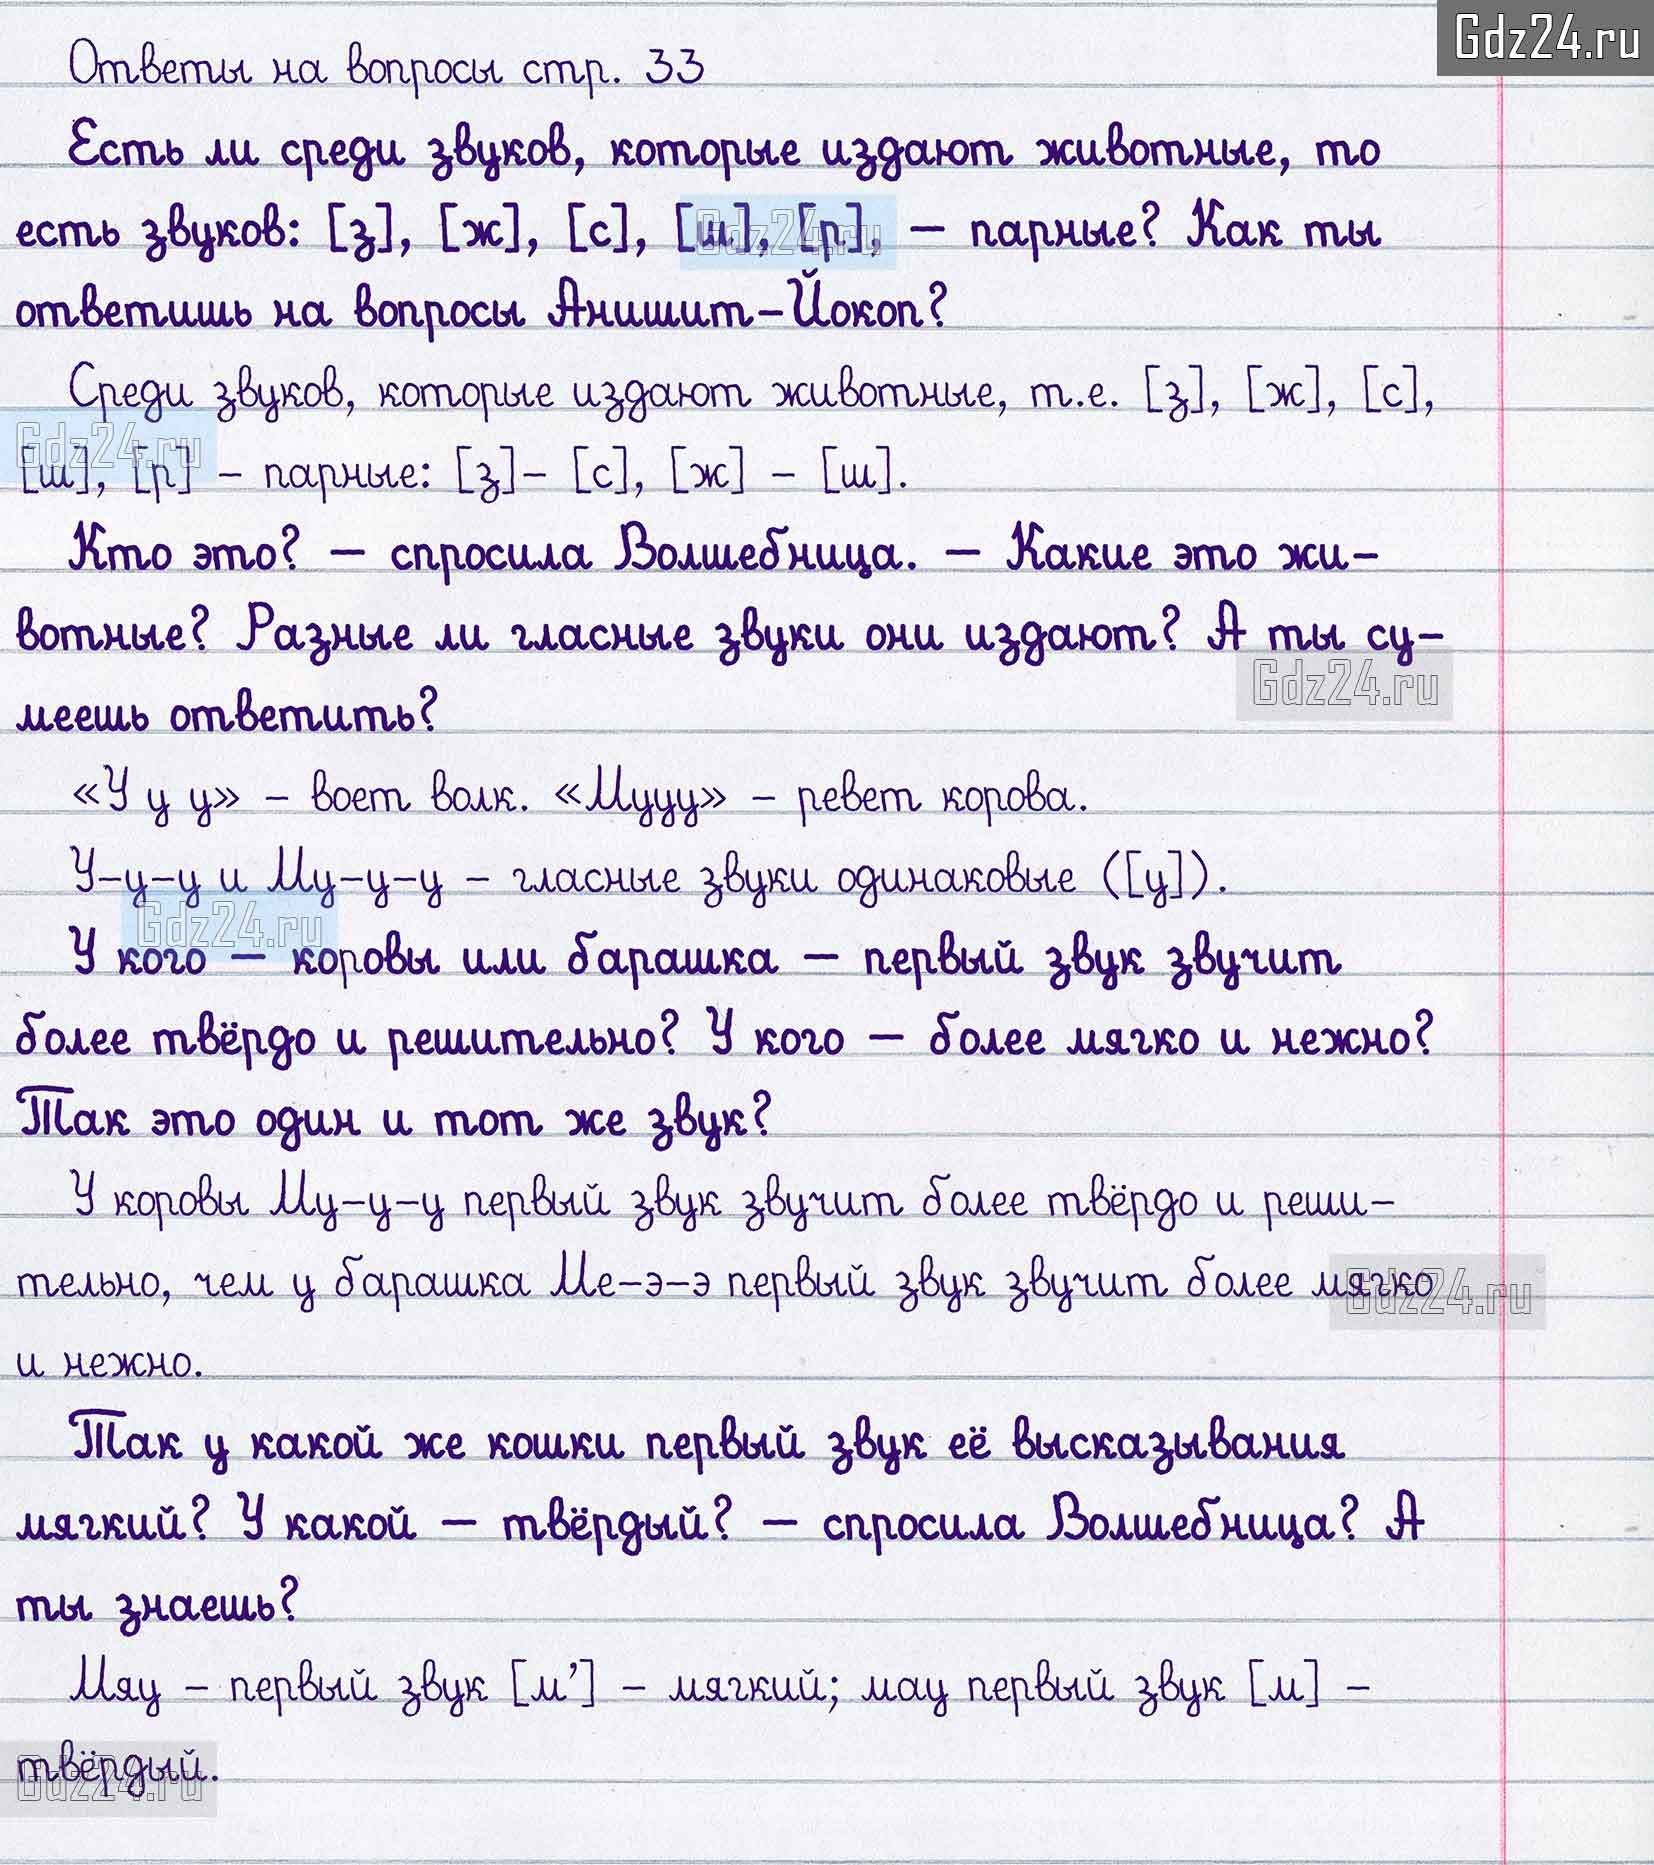 Gdz24.ru
Ответы на вопросы стр. 33
Есть ли среди звуков, которые издают животные, то
есть звуков: [з], [ж], [с], [ш], [р], – парные? Как ты
Gdz24.ru
ответишь на вопросы Анишит-Йокоп?
Среди звуков, которые издают животные, т.е. [з], [ж], [с],
Gdz24.ru
[ш], [р] – парные: [з]- [с], [ж] - [ш].
Кто это? – спросила Волшебница. – Какие это жи-
вотные? Разные ли гласные звуки они издают? А ты су-
Gdz24.ru
меешь ответить?
«У у у» - воет волк. «Мууу» - ревет корова.
У-у-у и Му-у-у - гласные звуки одинаковые ([у]).
Gdz24.ru
У кого – коровы или барашка – первый звук звучит
более твёрдо и решительно? У кого – более мягко и нежно?
Так это один и тот же звук?
У коровы Му-у-у первый звук звучит более твёрдо и реши-
тельно, чем у барашка Ме-э-э первый звук звучит более мягко
Gdz24.ru
и нежно.
Так у какой же кошки первый звук её высказывания
мягкий? У какой – твёрдый? – спросила Волшебница? А
ты знаешь?
Мяу - первый звук [м’] - мягкий; мау первый звук [м] -
твёрдый.
Gdz24.ru